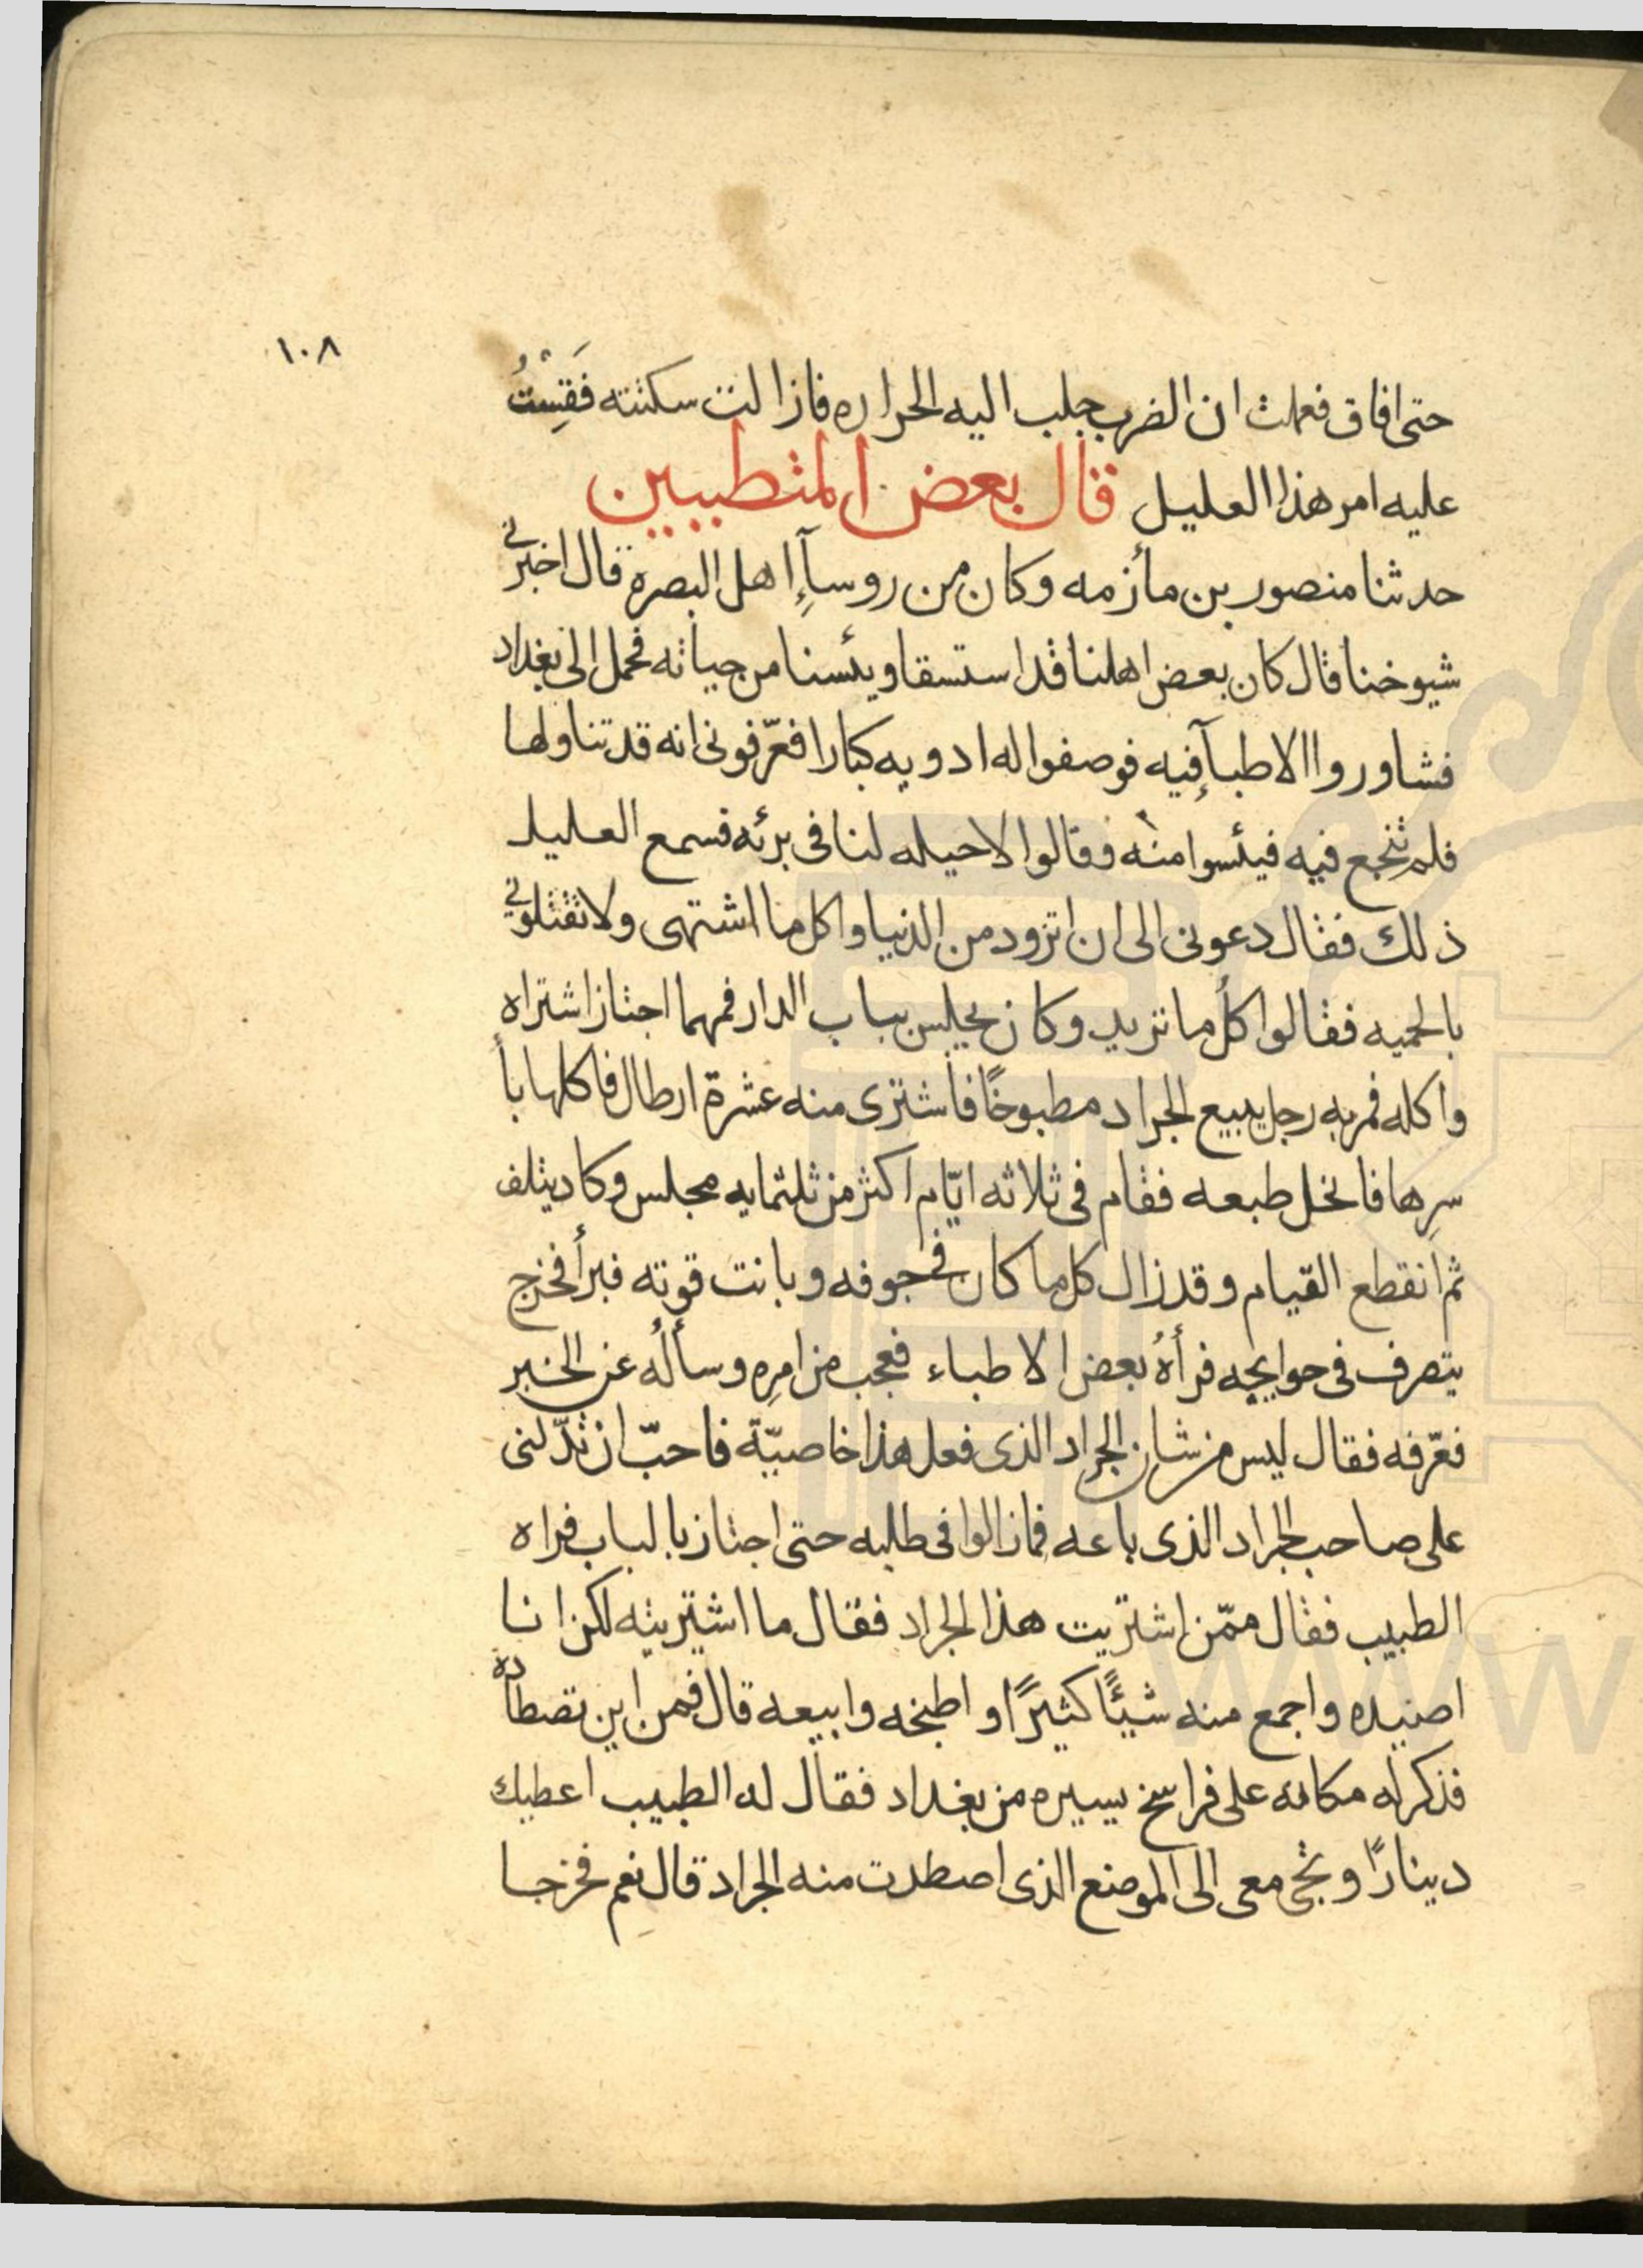 ١٠٨
حتى افاق فعملت ان الضرب جلب اليه الحراره فازالت سكتته فَقِسْتُ
عليه امر هذا العليل قال بعض المتطببين
حدثنا منصور بن مأزمه وكان من روسآءِ اهل البصره قال اخبرني
شيوخنا قال كان بعض اهلنا قد استسقا ويئسنا من حياته فحمل الى بغداد
فشاوروا الاطبآءِ فيه فوصفوا له ادويه كبارا فعرّفونى انه قد تناولها
فلم تنجع فيه فيئسوا منه وقالوا لا حيله لنا فى برئه فسمع العليل
ذلك فقال دعونى الى ان اتزود من الدنيا واكل ما اشتهى ولا تقتلوني
بالحميه فقالوا كُل ما تريد وكان يجلس بباب الدار فمهما اجتاز اشتراه
واكله فمر به رجل يبيع الجراد مطبوخًا فاشترى منه عشرة ارطال فاكلها بأ
سرِها فانحل طبعه فقام فى ثلاثه ايّام اكثر من ثلثمايه مجلس وكاد يتلف
ثم انقطع القيام وقد زال كل ما كان فى جوفه وبانت قوته فبرأ فخرج
يتصرف فى حوايجه فرأهُ بعض الاطباء فعجب من امرِه وسألُه عن الخبر
فعرّفه فقال ليس من شان الجراد الذى فعل هذا خاصيّة فاحبّ ان تدّلنى
على صاحب الجراد الذى باعه فمازالوا فى طلبه حتى اجتاز بالباب فراه
الطبيب فقال ممّن اشتريت هذا الجراد فقال ما اشتريته لكن انا
اصيده واجمع منه شيئًا كثيرًا واطبخه وابيعه قال فمن اين تصطاده
فذكر له مكانه على فراسخ يسيره من بغداد فقال له الطبيب اعطيك
دينارًا وتجى معى الى الموضع الذى اصطدت منه الجراد قال نعم فخرجا